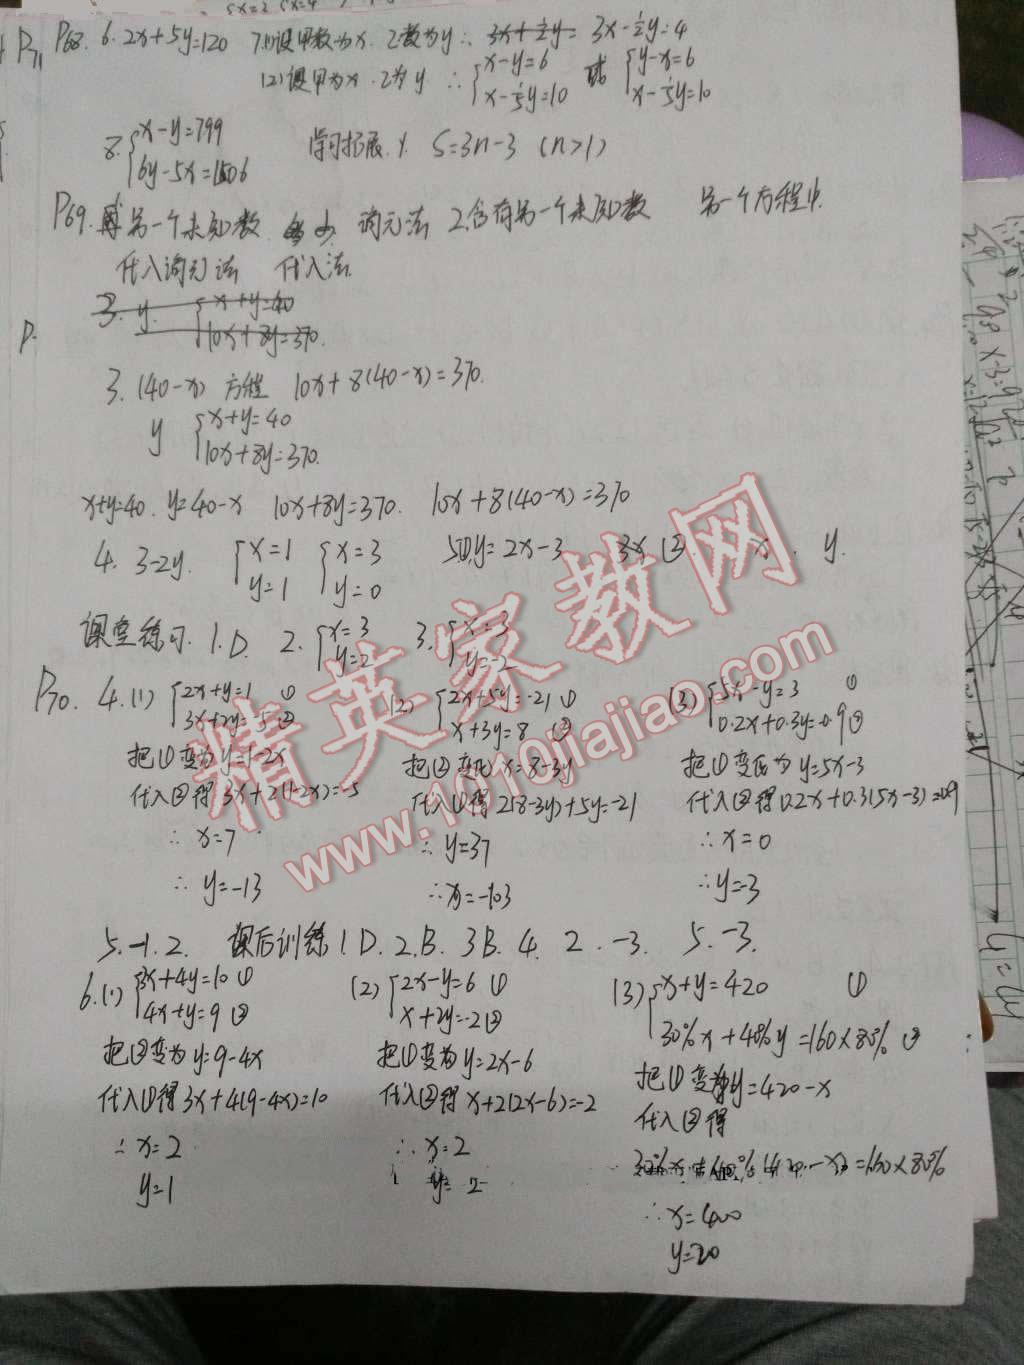 5x=2 5x=4
P71 P68. 6. 2x+5y=120 7.(1)设甲数为x. 乙数为y ∴ 3x+½y= 3x-½y=4
(2)设甲为x. 乙为y ∴ {x-y=6 或 {y-x=6
x-⅕y=10 x-⅕y=10
8. {x-y=799 学习拓展 1. S=3n-3 (n>1)
6y-5x=1506
P69. 另一个未知数 消元法 2.含有另一个未知数 另一个方程中
代入消元法 代入法
3. y. {x+y=40
10x+8y=370.
P.
3. (40-x) 方程 10x+8(40-x)=370.
y {x+y=40
10x+8y=370.
x+y=40. y=40-x 10x+8y=370. 10x+8(40-x)=370
4. 3-2y. {x=1 {x=3 5.(1)y=2x-3 3x ② x. y.
y=1 y=0
课堂练习. 1.D. 2. {x=3 3. {x=3
y=2 y=-2
P70. 4.(1) {2x+y=1 ① (2) {2x+5y=-21 ① (3) {5x-y=3 ①
3x+2y=-5 ② x+3y=8 ② 0.2x+0.3y=-0.9②
把①变为y=1-2x 把②变为x=8-3y 把①变为y=5x-3
代入②得 3x+2(1-2x)=-5 代入①得2(8-3y)+5y=-21 代入②得0.2x+0.3(5x-3)=-0.9
∴ x=7 ∴ y=37 ∴ x=0
∴ y=-13 ∴ x=-103 ∴ y=-3
5.-1. 2. 课后训练 1.D. 2.B. 3B. 4. 2. -3. 5. -3.
6.(1) {3x+4y=10 ① (2) {2x-y=6 ① (3) {x+y=420 ①
4x+y=9 ② x+2y=-2② 30%x+40%y=160×80% ②
把②变为y=9-4x 把①变为y=2x-6 把①变为y=420-x
代入①得3x+4(9-4x)=10 代入②得x+2(2x-6)=-2 代入②得
∴ x=2 ∴ x=2 30%x+40%(420-x)=160×80%
y=1 y=-2 ∴ x=400
y=20
精英家教网
www.1010jiajiao.com